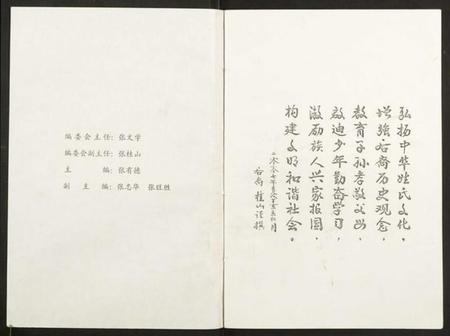 编委会主任：张文学
编委会副主任：张桂山
主　　编：张有德
副　主　编：张志华　张旺胜
弘扬中华姓氏文化，
增强后裔历史观念，
教育子孙孝敬父母，
启迪少年勤奋学习，
激励族人兴家报国，
构建文明和谐社会。
二零零七年
后裔 桂山谨撰